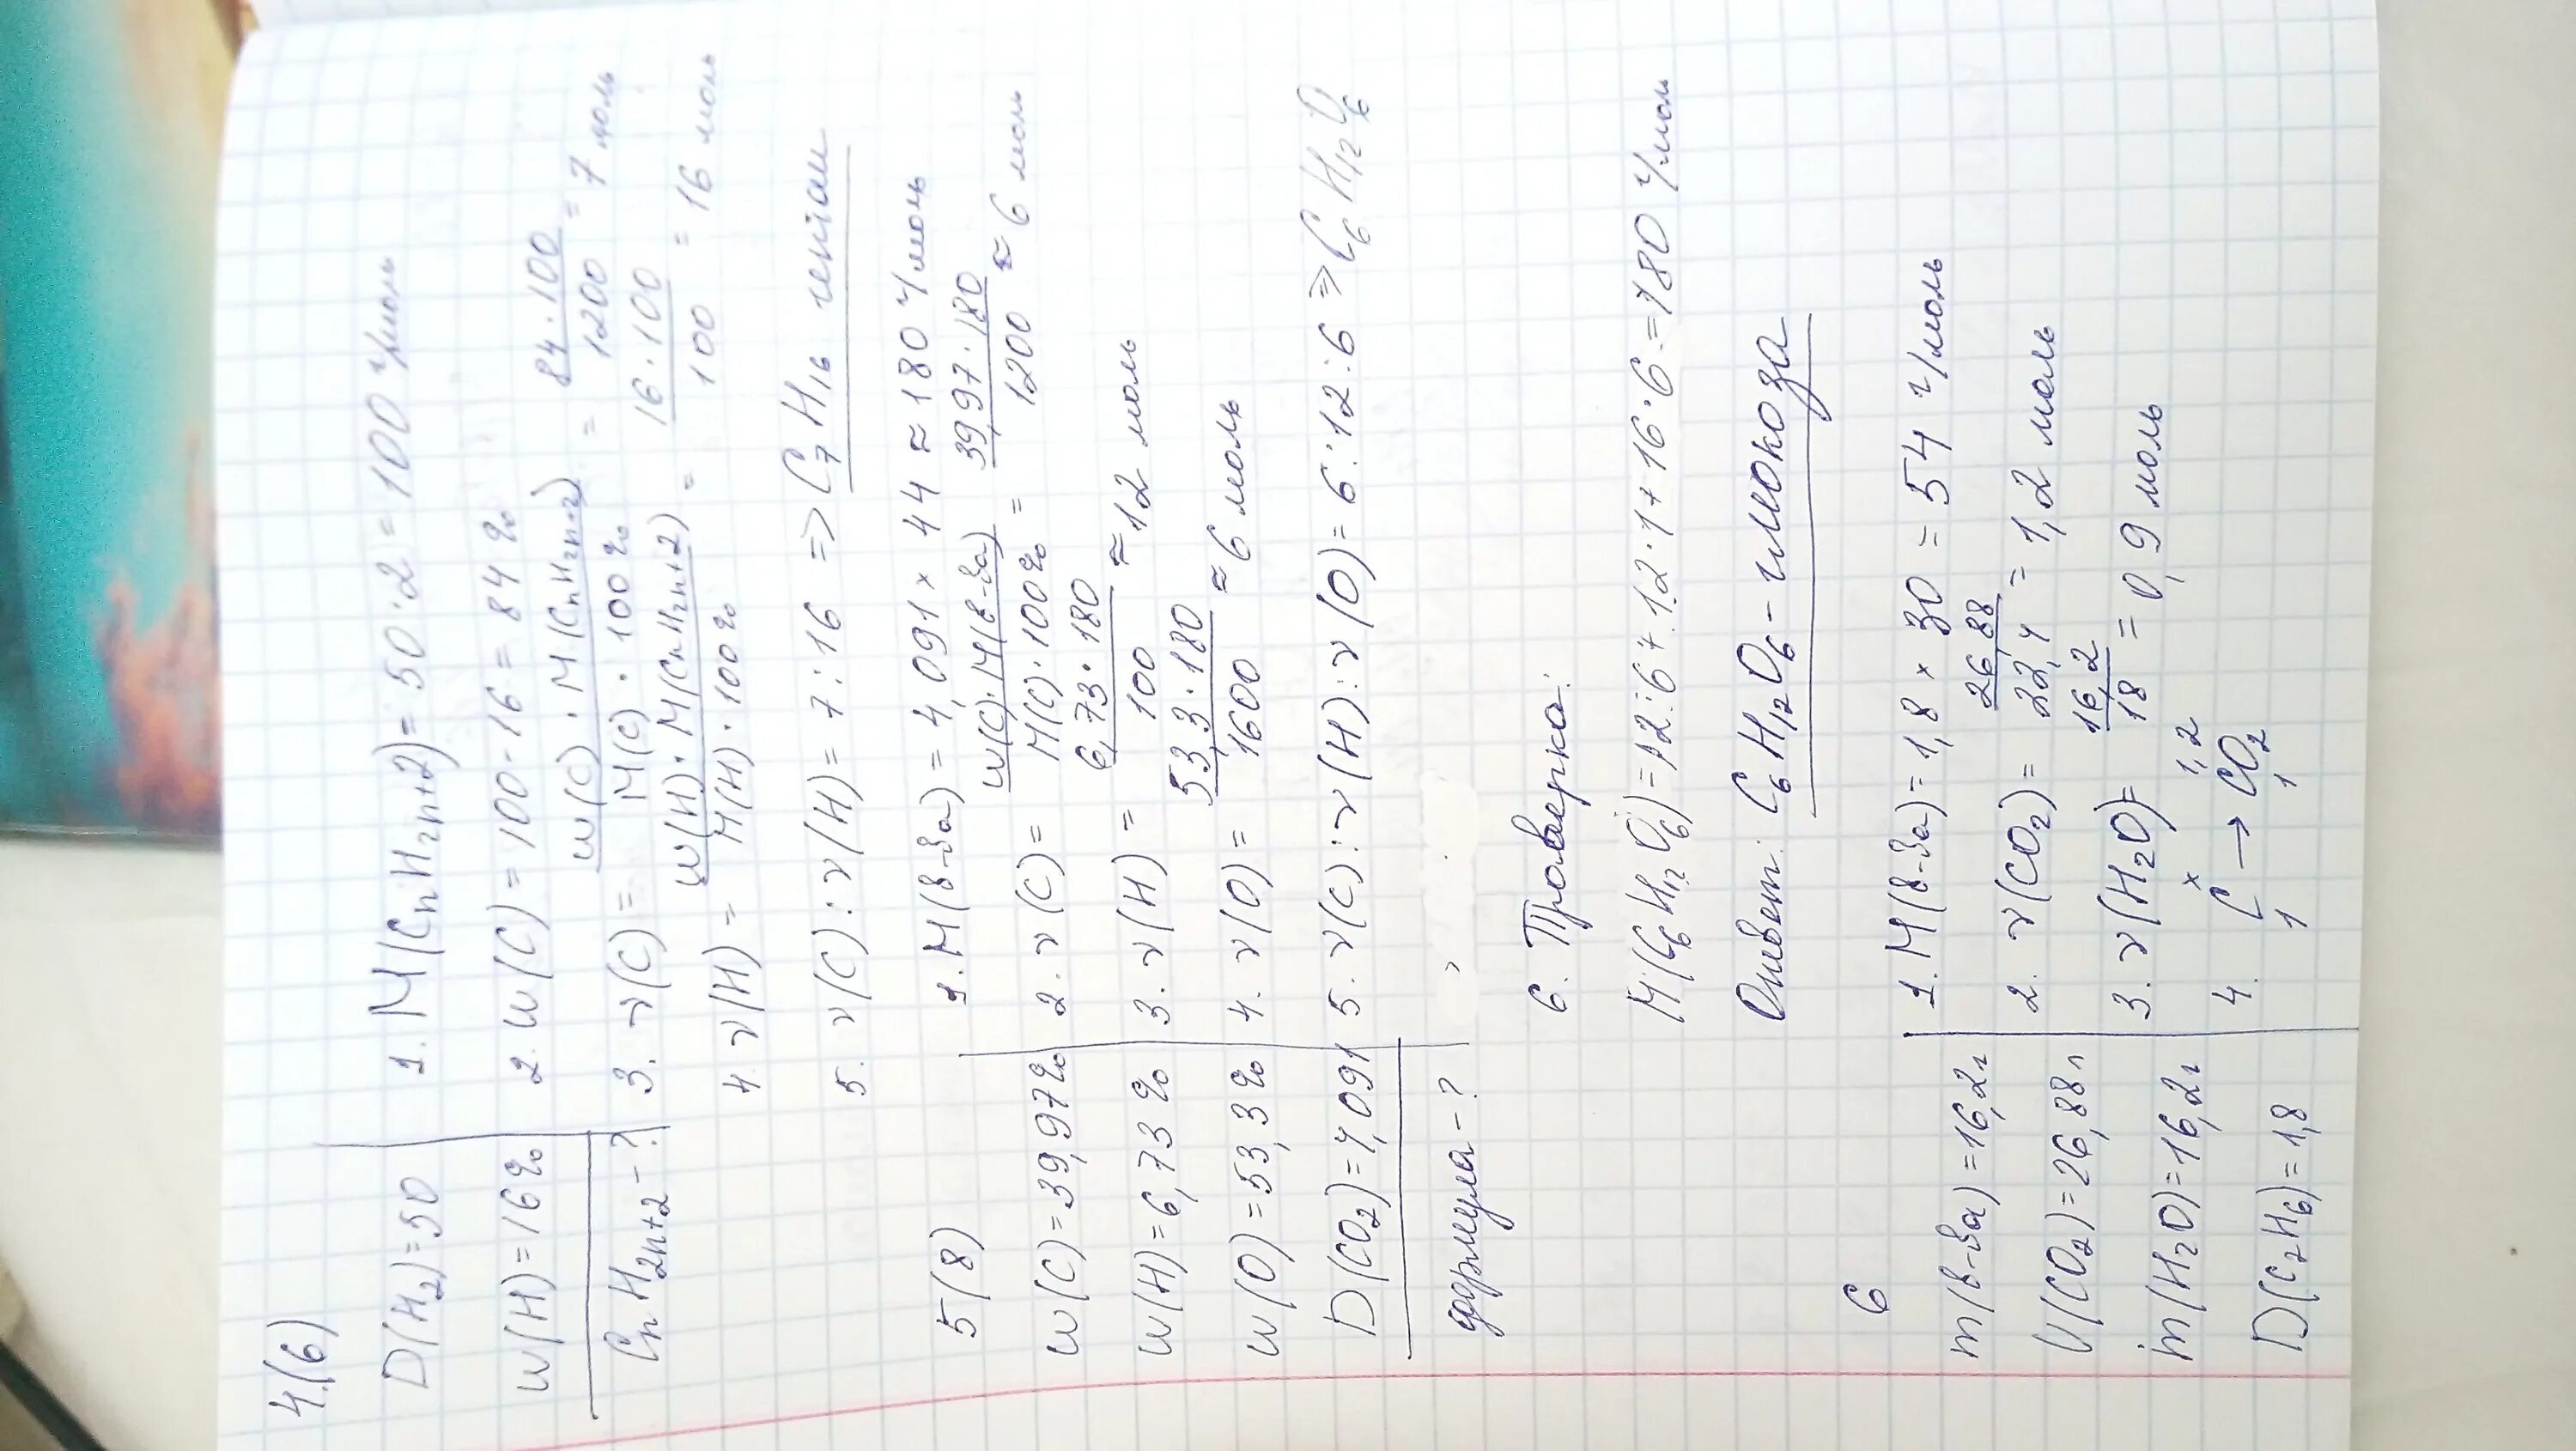 4.(6)
D(H₂)=50
w(H)=16%
CₙH₂ₙ₊₂-?
1. M(CₙH₂ₙ₊₂)=50·2=100 г/моль
2. w(C)=100-16=84%
3. ν(C)= w(C)·M(CₙH₂ₙ₊₂) / M(C)·100% = 84·100 / 1200 = 7 моль
4. ν(H)= w(H)·M(CₙH₂ₙ₊₂) / M(H)·100% = 16·100 / 100 = 16 моль
5. ν(C):ν(H)=7:16 => C₇H₁₆ гептан
5(8)
w(C)=39,97%
w(H)=6,73%
w(O)=53,3%
D(CO₂)=4,091
формула-?
1. M(в-ва)=4,091×44≈180 г/моль
2. ν(C)= w(C)·M(в-ва) / M(C)·100% = 39,97·180 / 1200 ≈ 6 моль
3. ν(H)= 6,73·180 / 100 ≈12 моль
4. ν(O)= 53,3·180 / 1600 ≈6 моль
5. ν(C):ν(H):ν(O)=6:12:6 => C₆H₁₂O₆
6. Проверка:
M(C₆H₁₂O₆)=12·6+12·1+16·6=180 г/мол
Ответ: C₆H₁₂O₆-глюкоза
6
m(в-ва)=16,2г
V(CO₂)=26,88л
m(H₂O)=16,2г
D(C₂H₆)=1,8
1. M(в-ва)=1,8×30=54 г/моль
2. ν(CO₂)= 26,88 / 22,4 = 1,2 моль
3. ν(H₂O)= 16,2 / 18 = 0,9 моль
x 1,2
4. C → CO₂
1 1